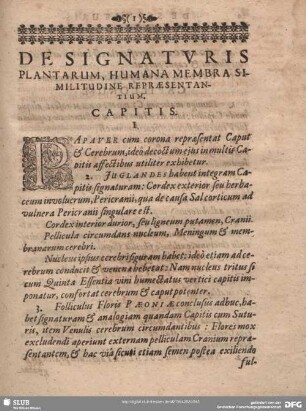 1
DE SIGNATVRIS
PLANTARUM, HUMANA MEMBRA SI-
MILITUDINE REPRÆSENTAN-
TIUM,
CAPITIS.
I.
PAPAVER cum corona repræsentat Caput
& Cerebrum, ideò decoctum ejus in multis Ca-
pitis affectibus utiliter exhibetur.
2. JUGLANDES habent integram Ca-
pitis signaturam: Cordex exterior seu herba-
ceum involucrum, Pericranii, qua de causa Sal corticum ad
vulnera Pericranii singulare est.
Cordex interior durior, seu ligneum putamen, Cranii.
Pelliculæ circumdant nucleum, Meningum & mem-
branarum cerebri.
Nucleus ipsus cerebri figuram habet: ideò etiam ad ce-
rebrum conducit & venena hebetat: Nam nucleus tritus si
cum Quinta Essentia vini humectatus vertici capitis im-
ponatur, confortat cerebrum & caput potenter.
3. Folliculus Floris PÆONIÆ conclusus adhuc, ha-
bet signaturam & analogiam quandam Capitis cum Sutu-
ris, item Venulis cerebrum circumdantibus: Flores mox
excludendi aperiunt externam pelliculam Cranium repræ-
sentantem, & hac viâ sicuti etiam semen postea exiliendo
ful-
SLUB
DFG